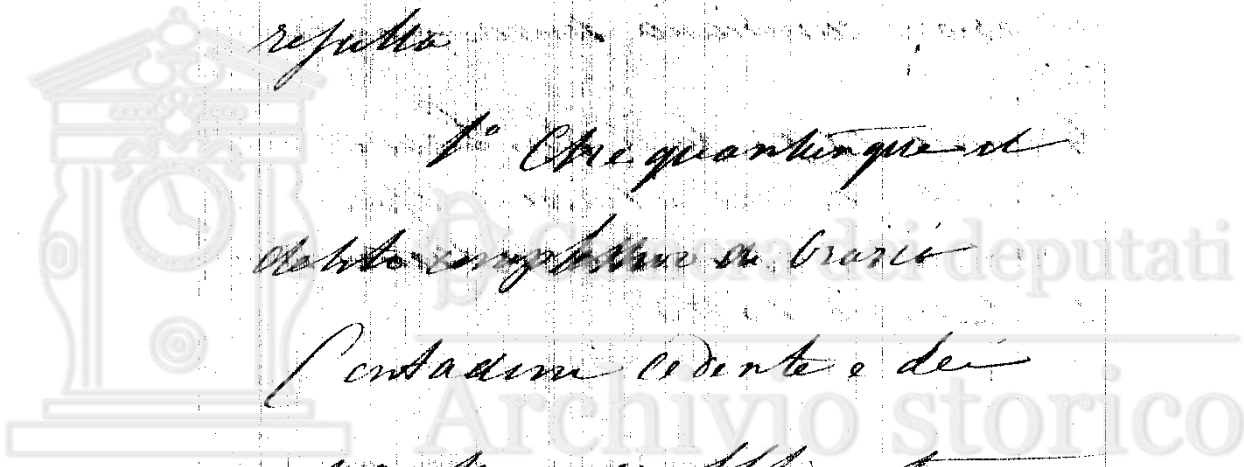 resulta
1° Che quantunque il
debito complessivo di Orazio
Contadini cedente e dei
Camera dei deputati
Archivio storico